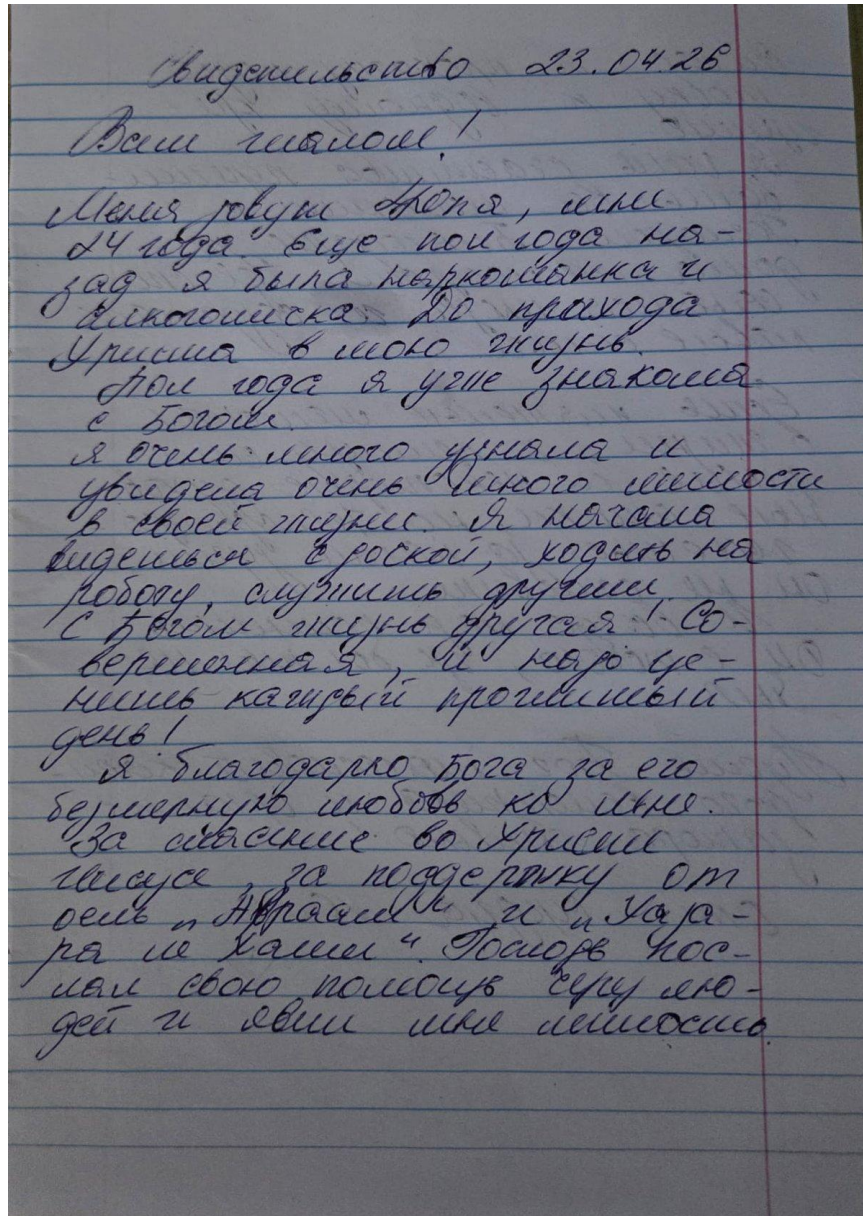 Свидетельство 23.04.26
Вам шалом!
Меня зовут, мне
24 года. Еще пол года на-
зад я была наркоманка и
алкоголичка. До прихода
Христа в мою жизнь.
Пол года я уже знакома
с Богом.
я очень много узнала и
увидела очень много милости
в своей жизни. Я начала
видеться с, ходить на
роботу, служить другим.
С Богом жизнь другая! Со-
вершенная, и надо це-
нить каждый прожитый
день!
Я благодарю Бога за его
безмерную любовь ко мне.
За спасение во Христе
Иисусе, за поддержку от
"Авраам" и "Хаза-
ра ле Хаим". Господь пос-
лал свою помощь через лю-
дей и явил мне милость.